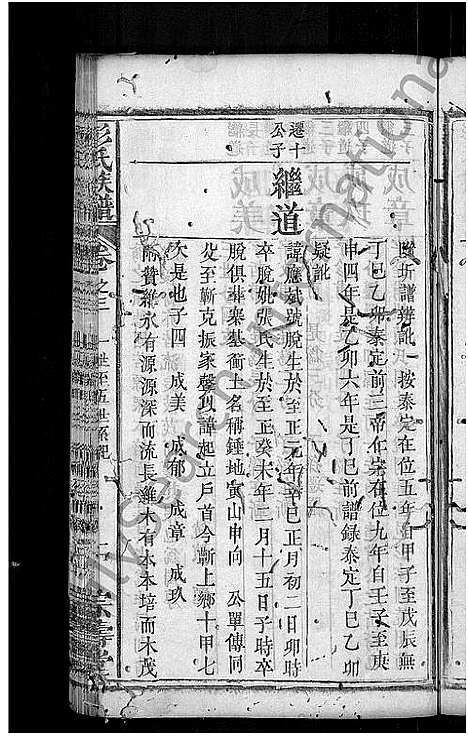 按泰定在位五年自甲子至戊辰無
丁巳乙卯泰定前三帝仁宗在位九年自壬子至庚
申四年是乙卯六年是丁巳前譜錄泰定丁巳乙卯
疑訛
遷十公子
繼道
諱應斌號脫生於至正元年辛巳正月初二日卯時
卒脫妣張氏生於至正癸未年二月十五日子時卒
脫俱葬寨基衝土名稱錘地寅山申向 公單傳同
父至蘄克振家聲以諱起立戶首今蘄上鄉十甲七
次是也子四 成美 成郁 成章 成玖
贊 維水有源源深而流長維木有本本培而木茂
彭氏族譜
卷之三
一世至五世系